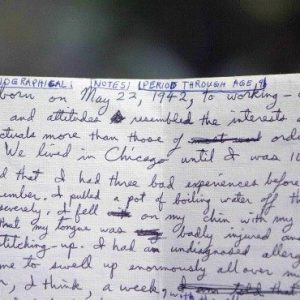 OGRAPHICAL NOTES PERIOD THROUGH AGE
born on May 22, 1942, to working-
and attitudes resembled the interests a
ctuals more than those of ord
We lived in Chicago until I was 10
d that I had three bad experiences before
ember. I pulled a pot of boiling water off th
severely. I fell on my chin with my
that my tongue was badly injured an
stitching-up. I had an undiagnosed allergy
me to swell up enormously all over m
r, I think, a week, told that